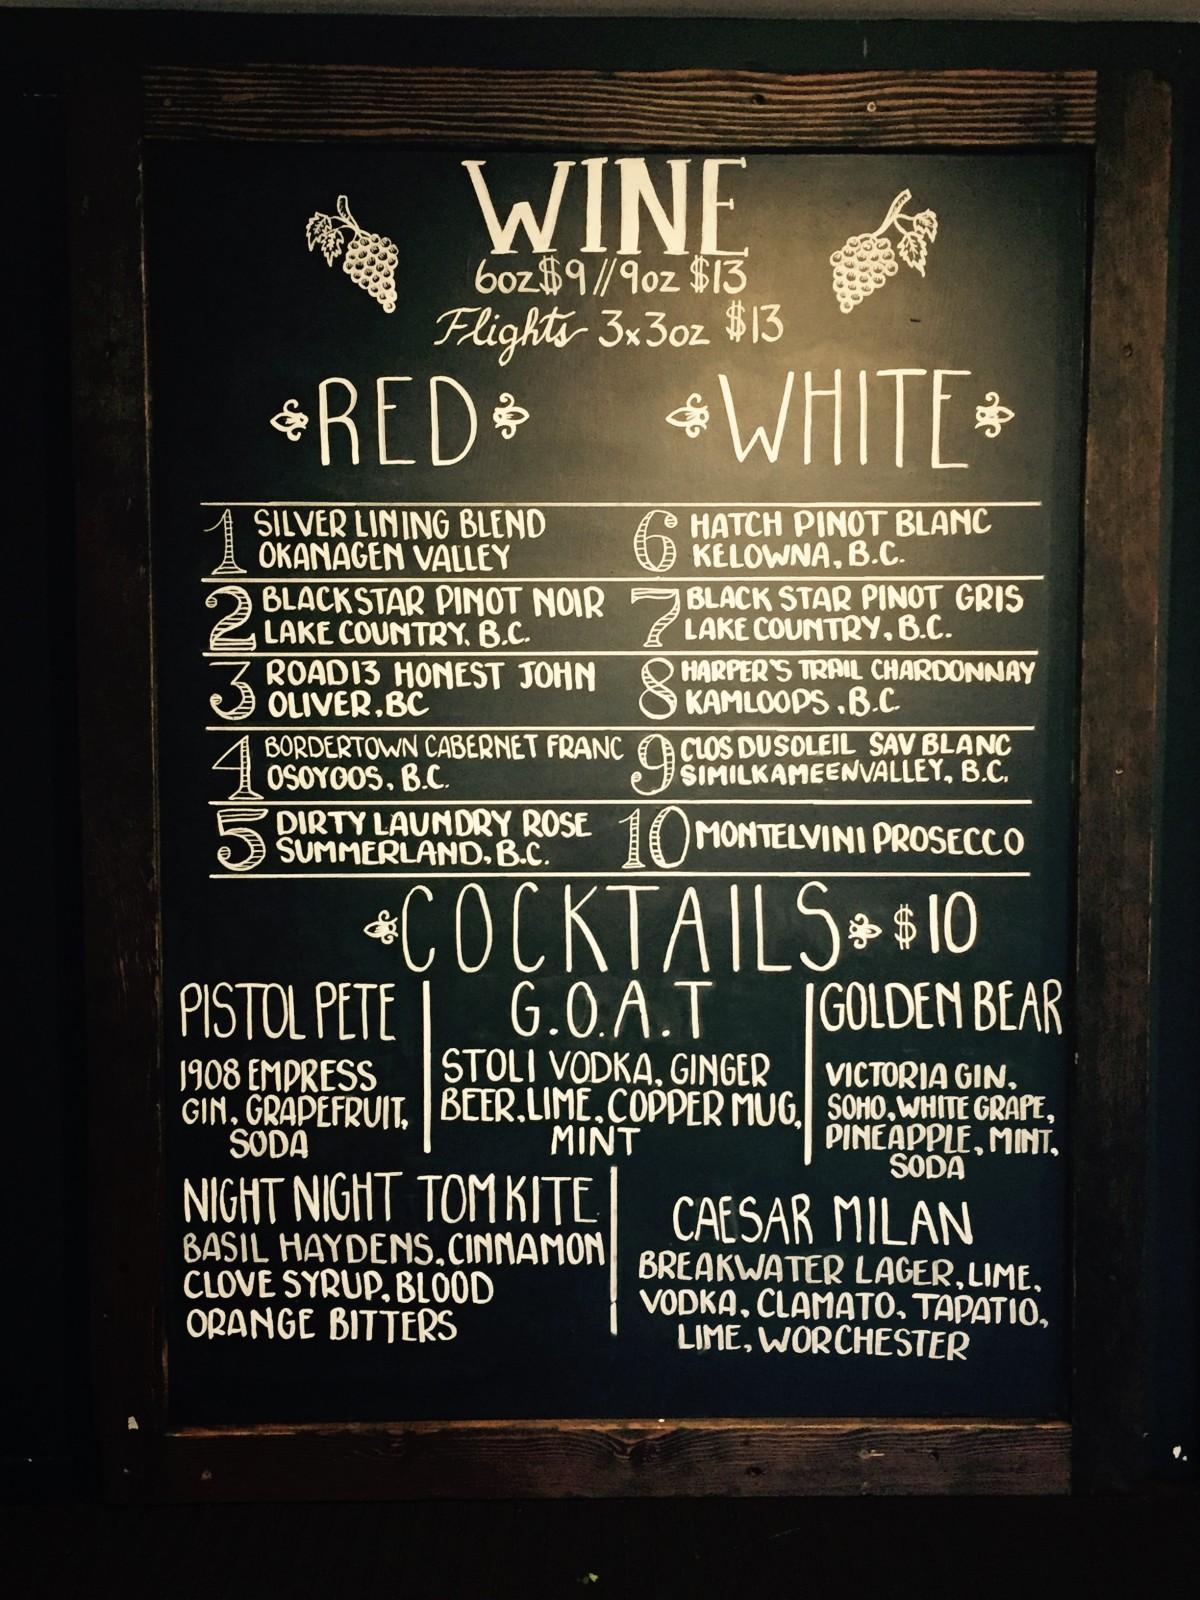 WINE
6oz $9 // 9oz $13
Flights 3x3oz $13
RED
WHITE
1 SILVER LINING BLEND
OKANAGEN VALLEY
2 BLACKSTAR PINOT NOIR
LAKE COUNTRY, B.C.
3 ROAD13 HONEST JOHN
OLIVER, BC
4 BORDERTOWN CABERNET FRANC
OSOYOOS, B.C.
5 DIRTY LAUNDRY ROSE
SUMMERLAND, B.C.
6 HATCH PINOT BLANC
KELOWNA, B.C.
7 BLACK STAR PINOT GRIS
LAKE COUNTRY, B.C.
8 HARPER'S TRAIL CHARDONNAY
KAMLOOPS, B.C.
9 CLOS DU SOLEIL SAV BLANC
SIMILKAMEEN VALLEY, B.C.
10 MONTELVINI PROSECCO
COCKTAILS $10
PISTOL PETE
1908 EMPRESS
GIN, GRAPEFRUIT,
SODA
G.O.A.T
STOLI VODKA, GINGER
BEER, LIME, COPPER MUG,
MINT
GOLDEN BEAR
VICTORIA GIN,
SOHO, WHITE GRAPE,
PINEAPPLE, MINT,
SODA
NIGHT NIGHT TOM KITE
BASIL HAYDENS, CINNAMON
CLOVE SYRUP, BLOOD
ORANGE BITTERS
CAESAR MILAN
BREAKWATER LAGER, LIME,
VODKA, CLAMATO, TAPATIO,
LIME, WORCHESTER